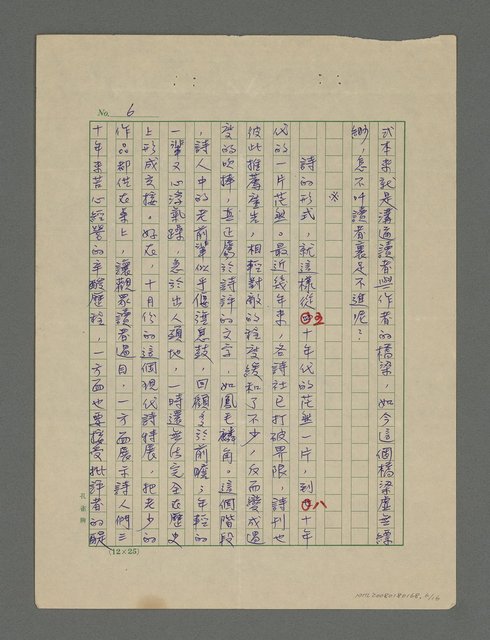 No. 6
式本來就是溝通讀者與作者的橋梁,如今這個橋梁虛無縹
緲,怎不叫讀者裹足不進呢?
※
詩的形式,就這樣從五十年代的茫無一片,到八十年
代的一片茫無。最近幾年來,各詩社已打破界限,詩刊也
彼此推薦產生,相輕對敵的程度緩和了不少,反而變成過
度的吹捧,真正屬於詩評的文字,如鳳毛麟角。這個階段
,詩人中的老前輩似乎偃旗息鼓,回顧多於前瞻;年輕的
一輩又心浮氣躁,急於出人頭地,一時還無法完全在歷史
上形成交接。好在,十月份的這個現代詩特展,把老少的
作品都供在桌上,讓觀眾讀者過目,一方面展示詩人們三
十年來苦心經營的辛酸歷程,一方面也要接受批評者的醍
孔雀牌
(12×25)
NMTL20080180168, 6/16